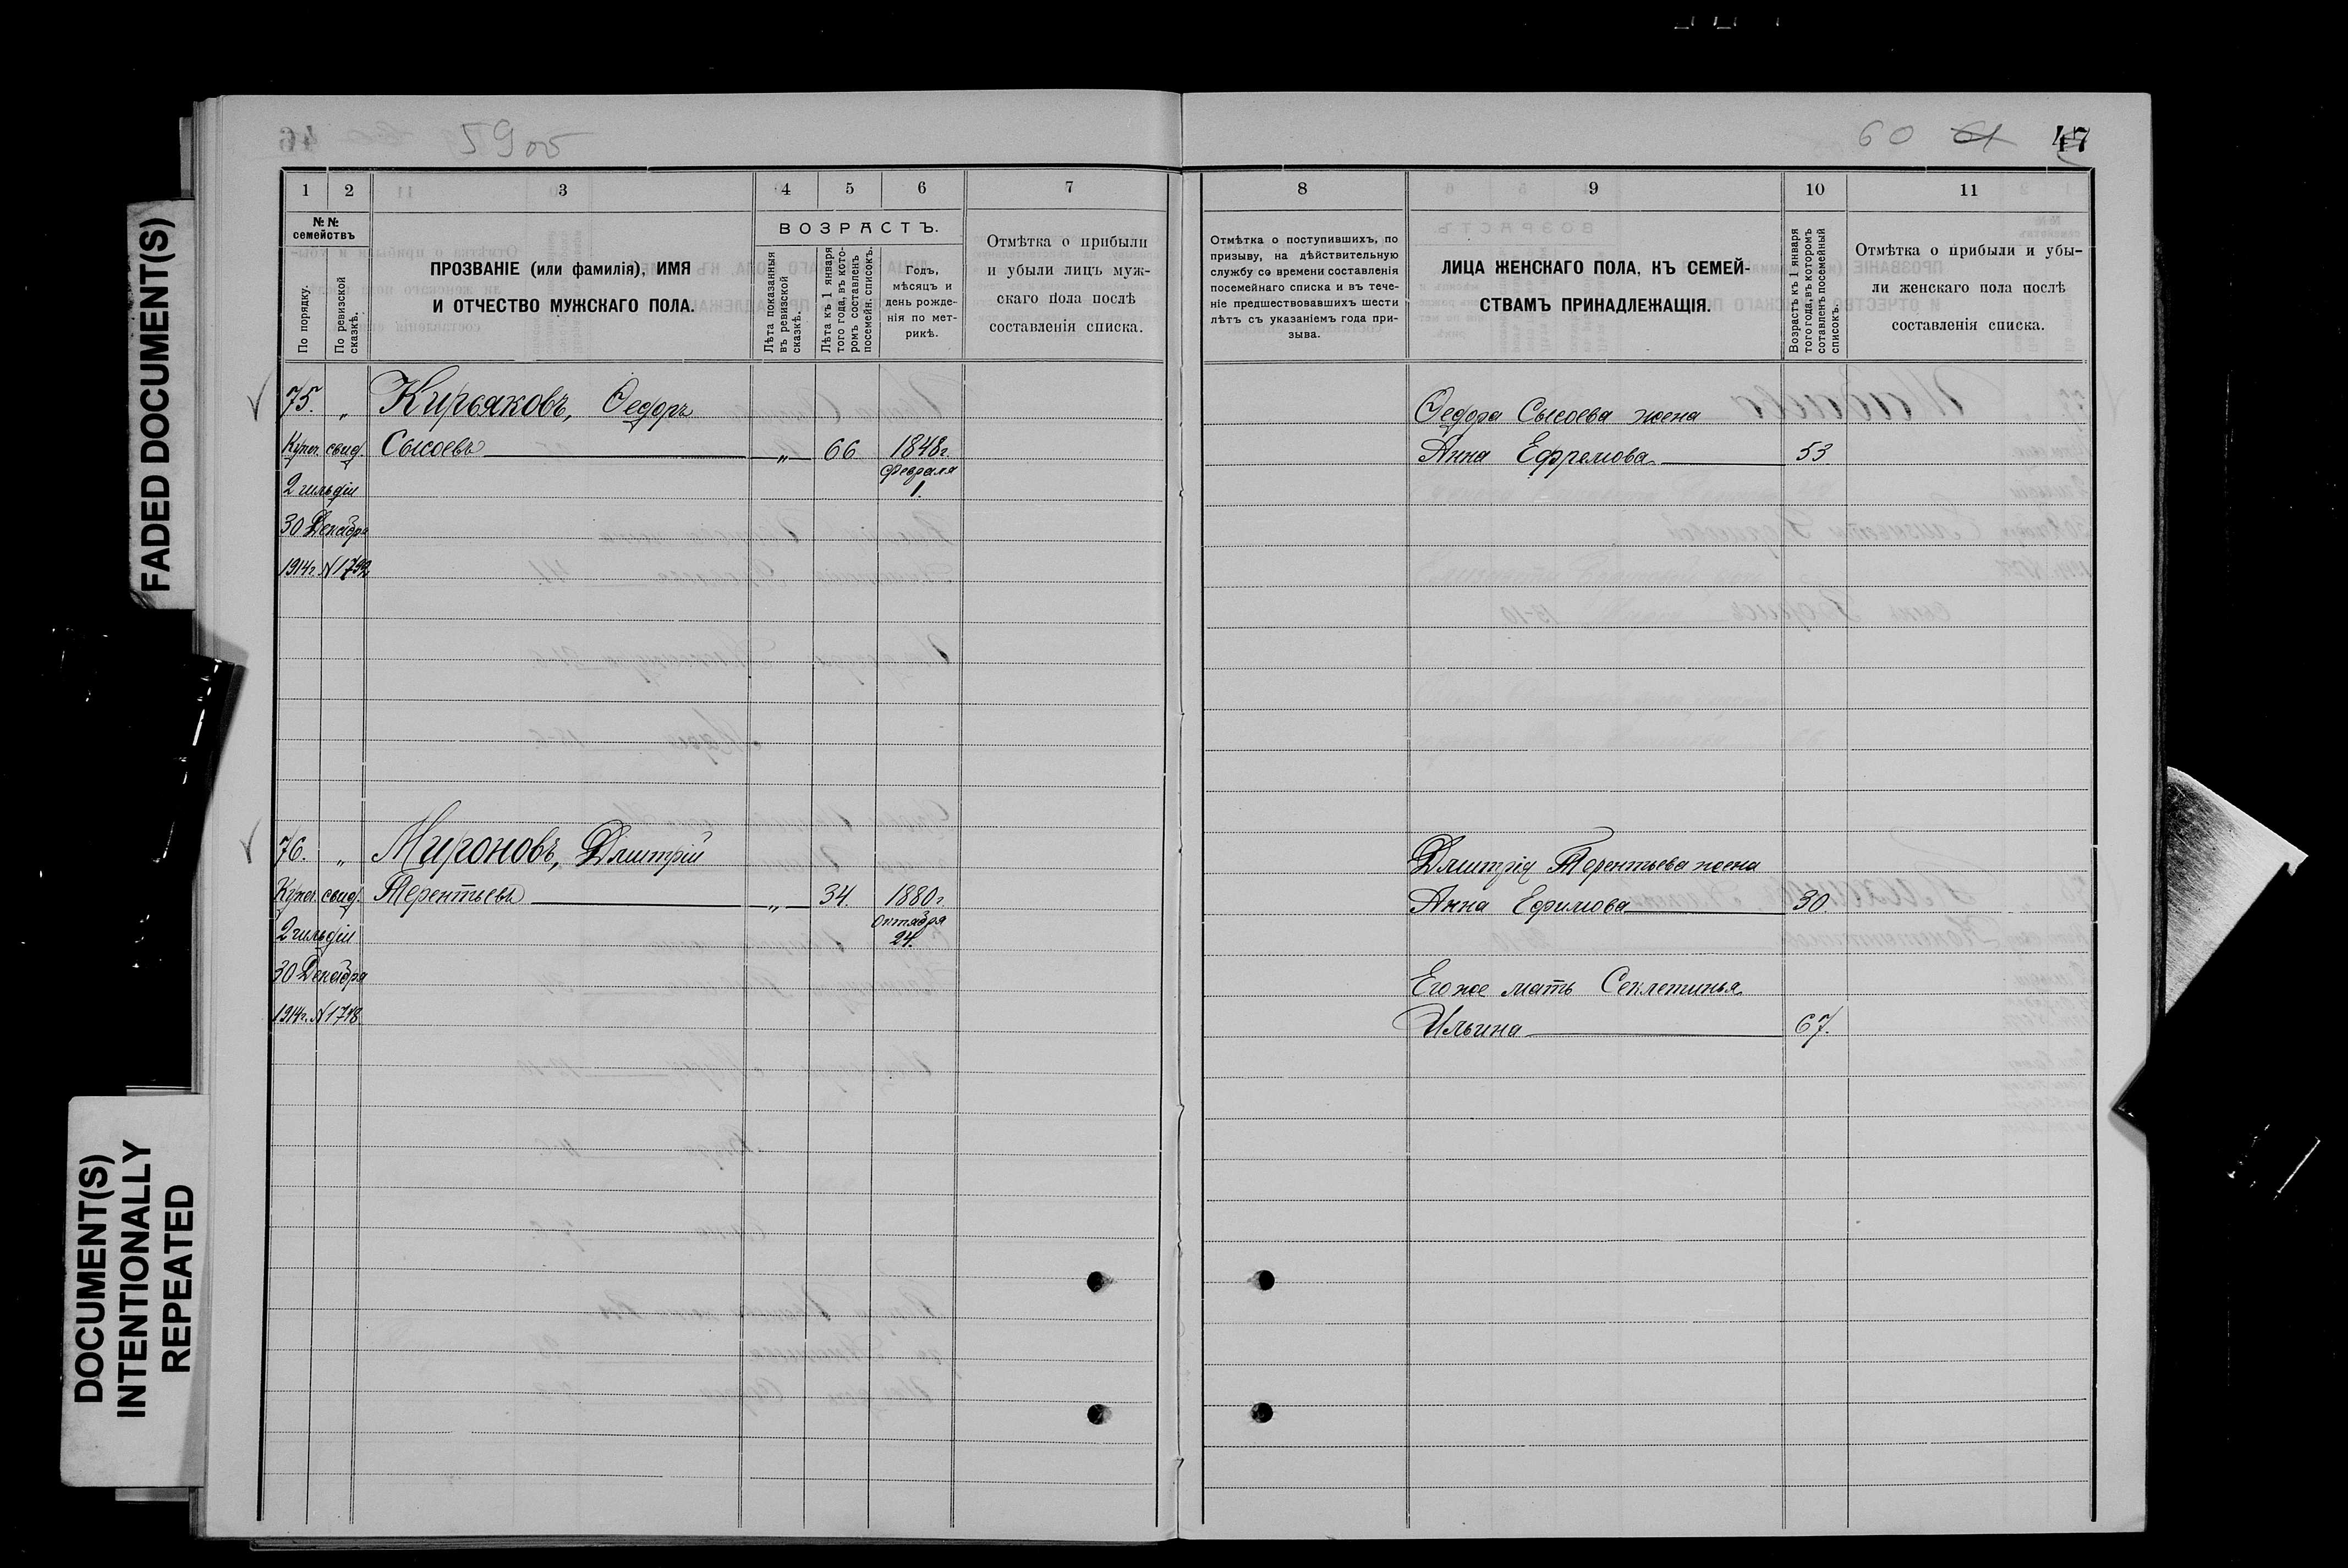 FADED DOCUMENT(S)
DOCUMENT(S)
INTENTIONALLY
REPEATED
59об
60 61 47
1 2 3 4 5 6 7
№№
семействъ
По порядку.
По ревизской
сказкѣ.
ПРОЗВАНІЕ (или фамилія), ИМЯ
И ОТЧЕСТВО МУЖСКАГО ПОЛА.
ВОЗРАСТЪ.
Лѣта показанныя
въ ревизской
сказкѣ.
Лѣта къ 1 января
того года, въ кото-
ромъ составленъ
посемейн. списокъ.
Годъ,
мѣсяцъ и
день рожде-
нія по мет-
рикѣ.
Отмѣтка о прибыли
и убыли лицъ муж-
скаго пола послѣ
составленія списка.
75. „ Кирьяковъ, Ѳедоръ
Купеч. свид. Сысоевъ „ 66 1848г.
Февраля
2 гильдіи 1.
30 Декабря
1914г. №1792
76. „ Мироновъ, Дмитрій
Купеч. свид. Терентьевъ „ 34. 1880г.
Октября
2 гильдіи 24.
30 Декабря
1914г. №1718
8 9 10 11
Отмѣтка о поступившихъ, по
призыву, на дѣйствительную
службу со времени составленія
посемейнаго списка и въ тече-
ніе предшествовавшихъ шести
лѣтъ съ указаніемъ года при-
зыва.
ЛИЦА ЖЕНСКАГО ПОЛА, КЪ СЕМЕЙ-
СТВАМЪ ПРИНАДЛЕЖАЩІЯ.
Возрастъ къ 1 января
того года, въ которомъ
составленъ посемейный
списокъ.
Отмѣтка о прибыли и убы-
ли женскаго пола послѣ
составленія списка.
Ѳедора Сысоева жена
Анна Ефремова 53
Дмитрія Терентьева жена
Анна Ефимова 30.
Его же мать Секлетинья
Ильина 67.